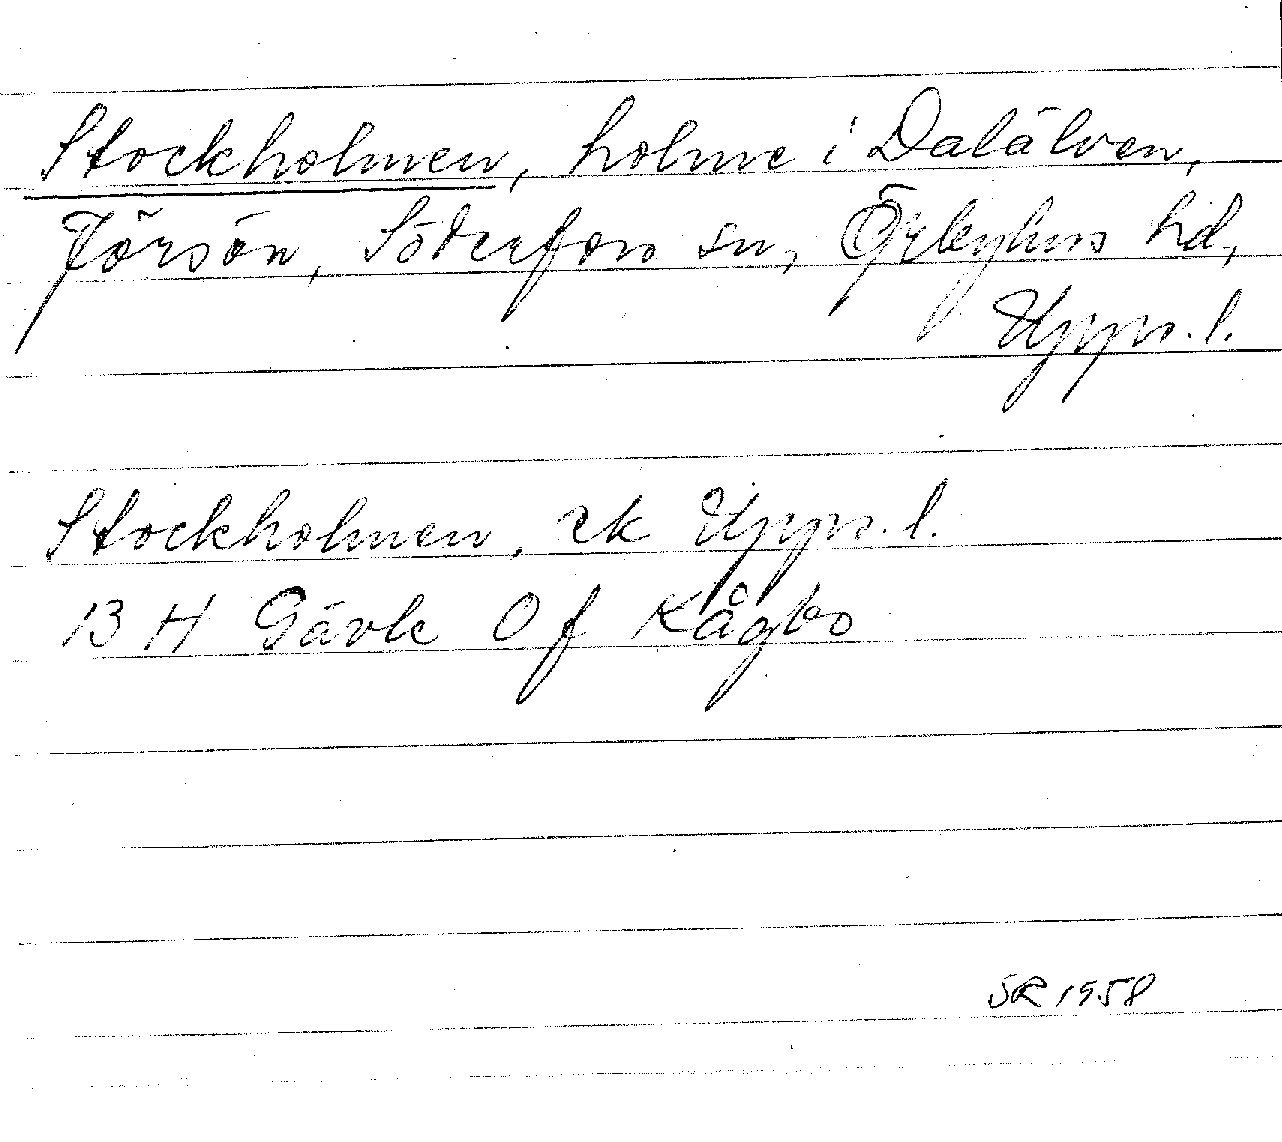 Stockholmen, holme i Dalälven,
Jörsön, Söderfors sn, Örbyhus hd,
Upps. l.
Stockholmen, ek Upps. l.
13 H Gävle 0 f Kågbo
SR 1958